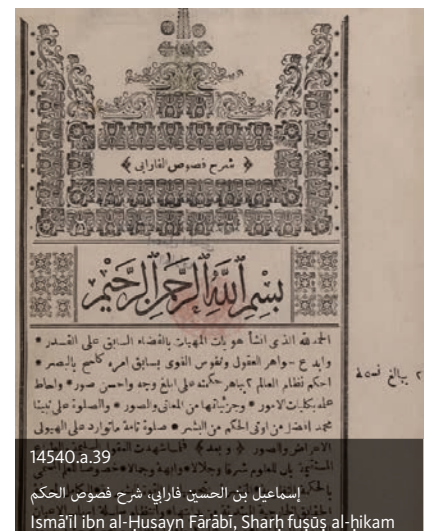 ﴿ شرح فصوص الفارابى ﴾
بِسْمِ اللَّهِ الرَّحْمَنِ الرَّحِيمِ
الحمد لله الذى انشأ هويات المهيات بالقضاء السابق على القدر *
وابدع جواهر العقول ونفوس القوى بسابق امره كلمح بالبصر *
احكم نظام العالم ٢ بباهر حكمته على ابلغ وجه واحسن صور * واحاط
علمه بكليات الامور * وجزئياتها من المعانى والصور * والصلوة على نبينا
محمد افضل من اوتى الحكم من البشر * صلوة تامة ماتوارد على الهيولى
الاعراض والصور * وبعد
٢ ببالغ نسخه
14540.a.39
إسماعيل بن الحسين فارابي، شرح فصوص الحكم
Ismāʿīl ibn al-Ḥusayn Fārābī, Sharḥ fuṣūṣ al-ḥikam